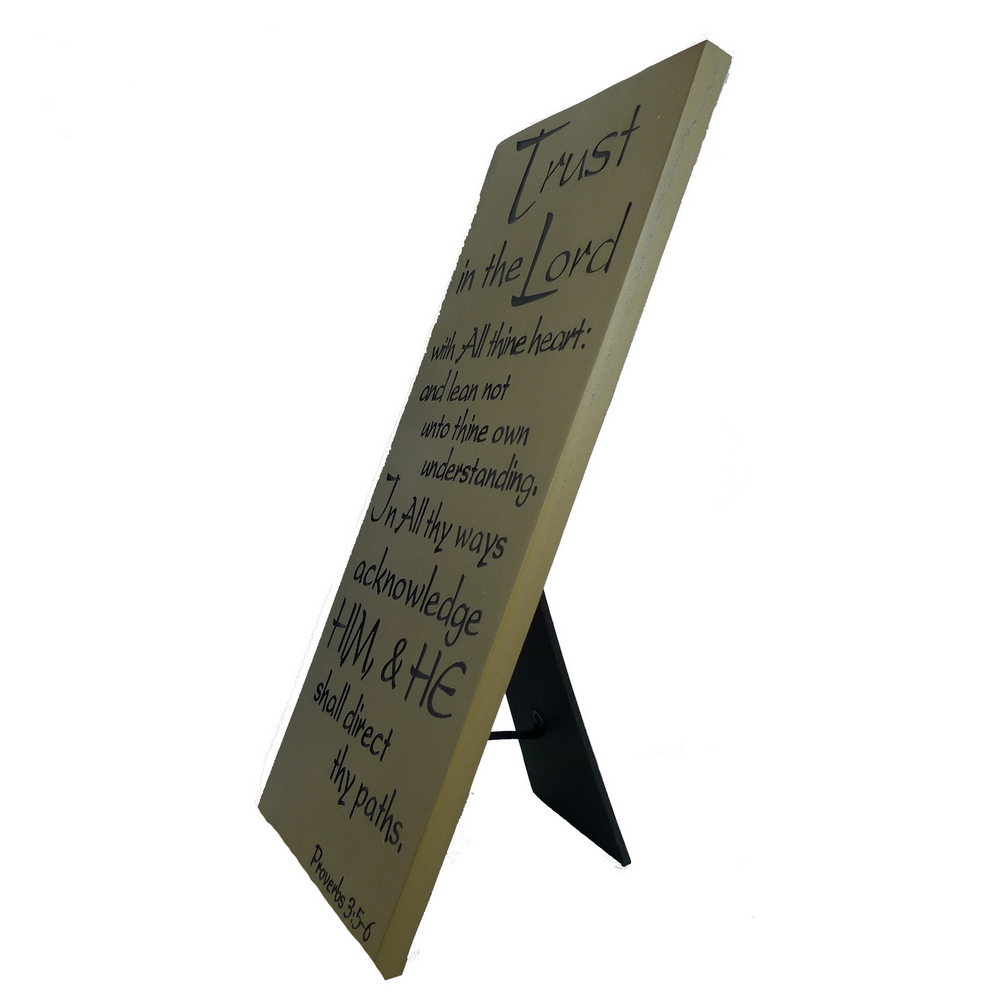 Trust
in the Lord
with All thine heart:
and lean not
unto thine own
understanding.
In All thy ways
acknowledge
HIM, & HE
shall direct
thy paths.
Proverbs 3:5-6